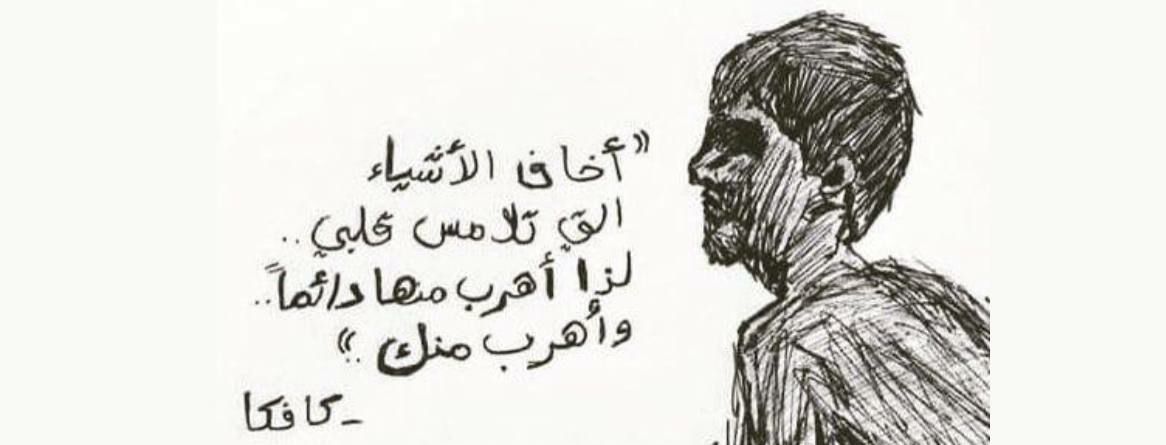 "أخاف الأشياء
التي تلامس قلبي..
لذا أهرب منها دائماً..
وأهرب منك.."
- كافكا